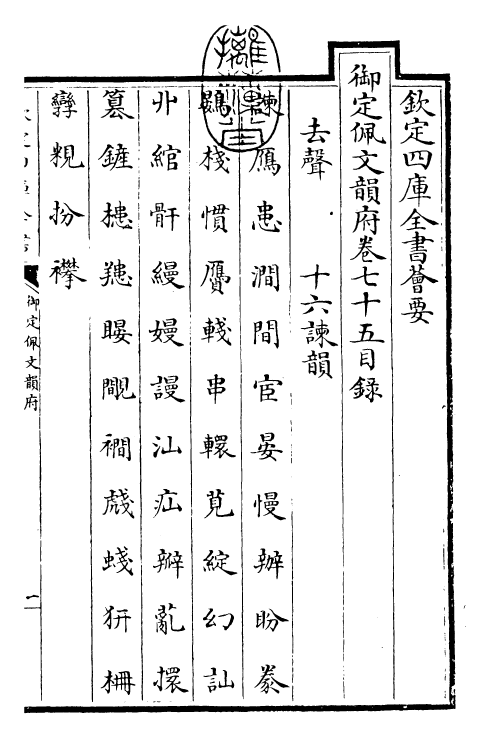 欽定四庫全書薈要
御定佩文韻府卷七十五目録
去聲 十六諫韻
諫鴈患澗間宦晏慢辦盼豢
鷃棧慣贗輚串轘莧綻幻訕
丱綰骭縵嫚謾汕疝瓣薍擐
篡鏟槵羵晏覸襉虥虥豜柵
孿粯扮襻
御定佩文韻府
一